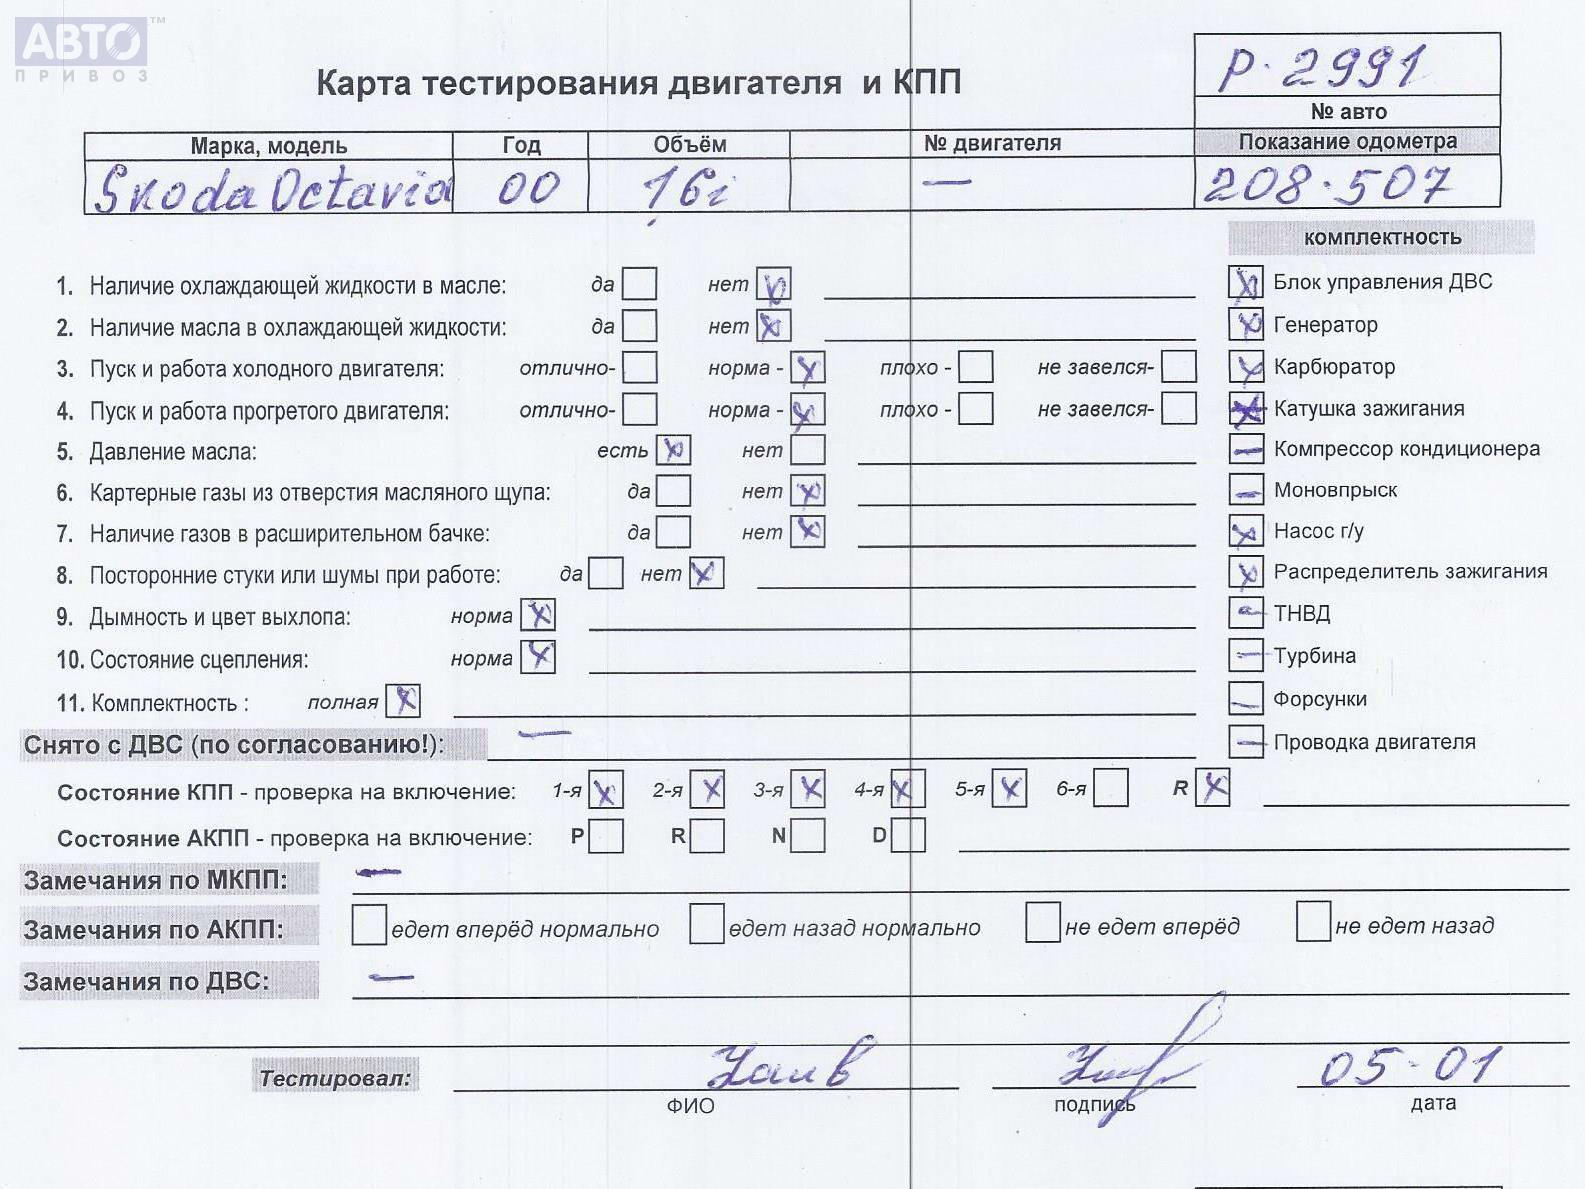 АВТО ТМ
ПРИВОЗ
Карта тестирования двигателя и КПП
р. 2991
№ авто
Марка, модель Год Объём № двигателя Показание одометра
Skoda Octavia 00 1,6i — 208.507
комплектность
1. Наличие охлаждающей жидкости в масле: да нет x
2. Наличие масла в охлаждающей жидкости: да нет x
3. Пуск и работа холодного двигателя: отлично- норма - x плохо - не завелся-
4. Пуск и работа прогретого двигателя: отлично- норма - x плохо - не завелся-
5. Давление масла: есть x нет
6. Картерные газы из отверстия масляного щупа: да нет x
7. Наличие газов в расширительном бачке: да нет x
8. Посторонние стуки или шумы при работе: да нет x
9. Дымность и цвет выхлопа: норма x
10. Состояние сцепления: норма x
11. Комплектность : полная x
x Блок управления ДВС
x Генератор
x Карбюратор
x Катушка зажигания
— Компрессор кондиционера
— Моновпрыск
x Насос г/у
x Распределитель зажигания
— ТНВД
— Турбина
— Форсунки
— Проводка двигателя
Снято с ДВС (по согласованию!): —
Состояние КПП - проверка на включение: 1-я x 2-я x 3-я x 4-я x 5-я x 6-я R x
Состояние АКПП - проверка на включение: P R N D
Замечания по МКПП: —
Замечания по АКПП: едет вперёд нормально едет назад нормально не едет вперёд не едет назад
Замечания по ДВС: —
Тестировал: 05-01
ФИО подпись дата